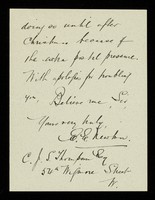 doing so until after
Christmas because of
the extra postal pressure.
With apologies for troubling
you, Believe me, Sir
Yours very truly
E. Newton
C. J. S. Thompson Esq
54A Wigmore Street
W.